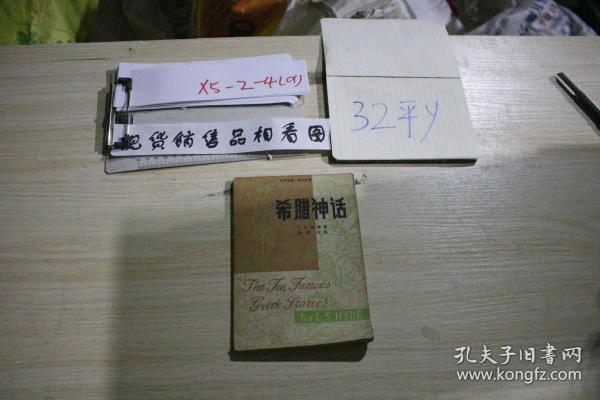 X5-2-4(9)
现货销售品相看图
32平y
希腊神话
The Ten Famous
Greek Stories
by L.S.HYDE
孔夫子旧书网
www.kongfz.com